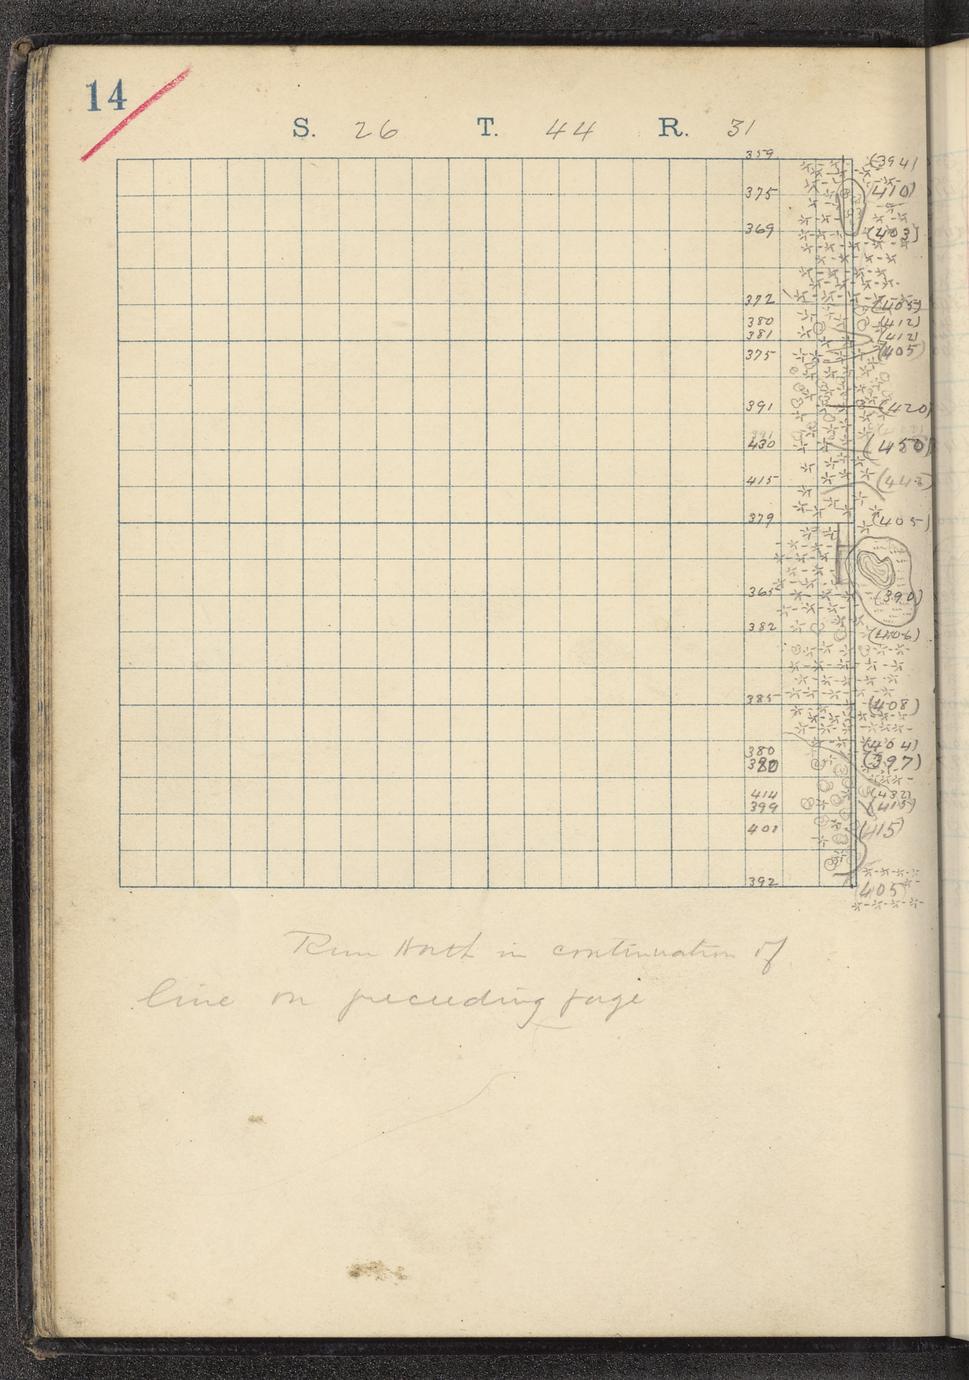 14
S. 26 T. 44 R. 31
359 (394)
375 (410)
369 (403)
372 (405)
380 (412)
381 (412)
375 (405)
391 (420)
430 (450)
415 (443)
379 (405)
365 (390)
382 (406)
385 (408)
380 (404)
(397)
414 (432)
399 (415)
401 (415)
392 405
Run North in continuation of
line on preceeding page